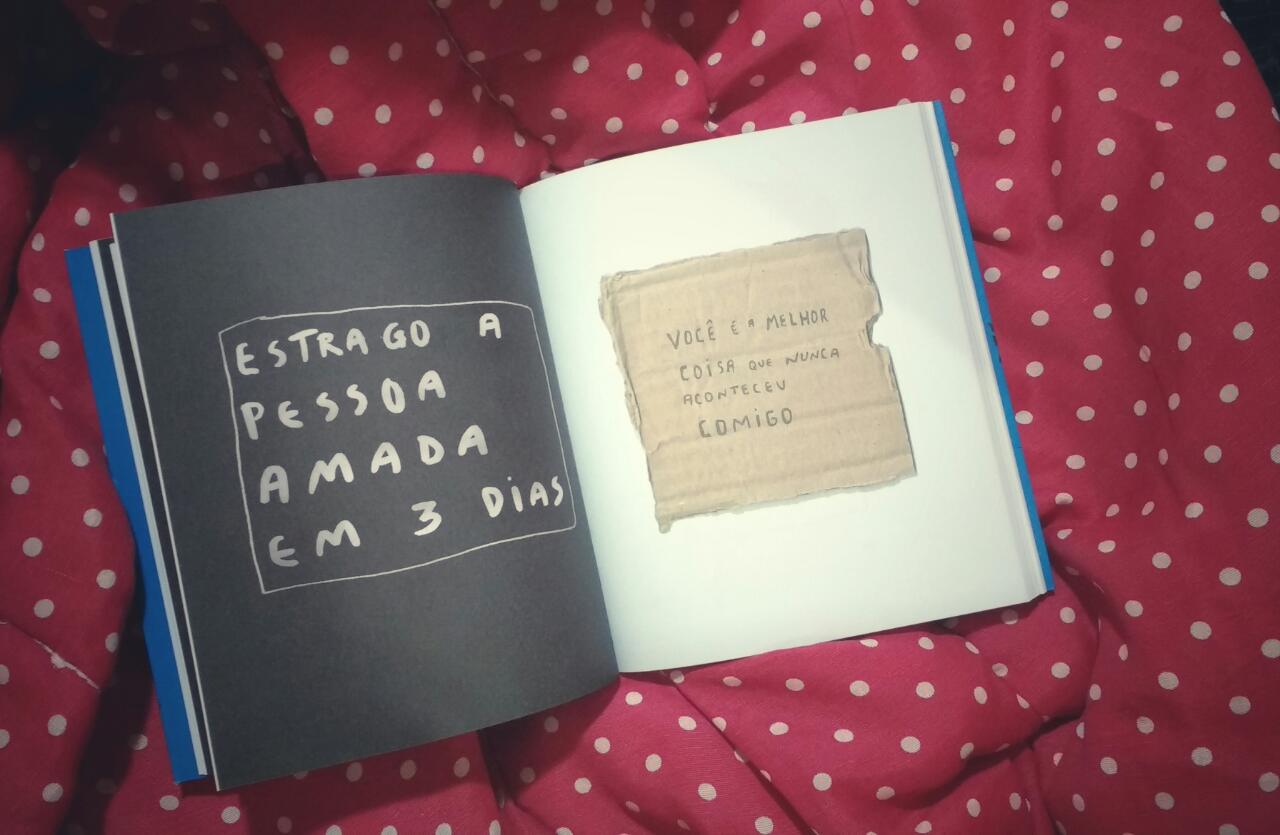 ESTRAGO A
PESSOA
AMADA
EM 3 DiAS
VOCÊ É A MELHOR
COISA QUE NUNCA
ACONTECEU
COMIGO